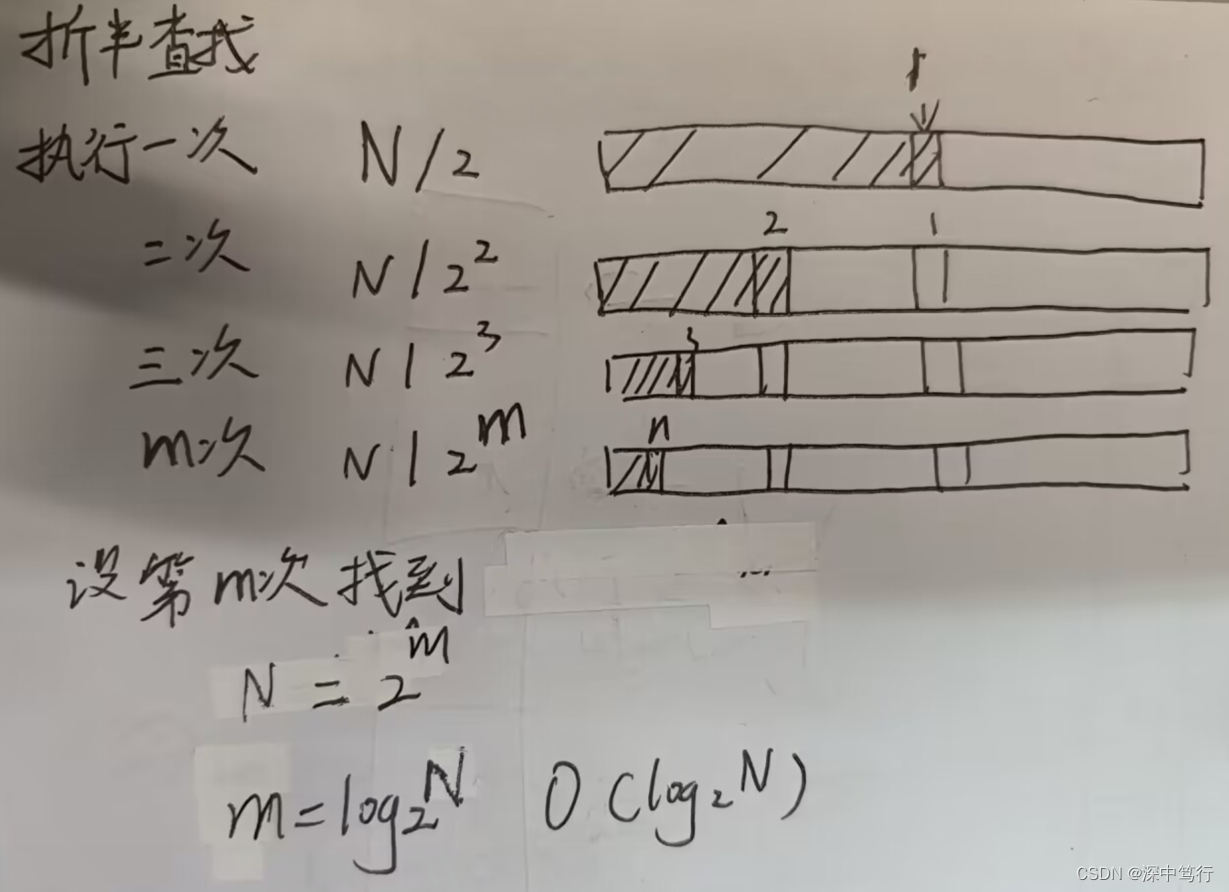 折半查找
执行一次 N/2 1
二次 N/2² 2 1
三次 N/2³ 3
m次 N/2ᵐ n
设第m次找到
N = 2ᵐ
m = log₂N O(log₂N)
CSDN @深中笃行